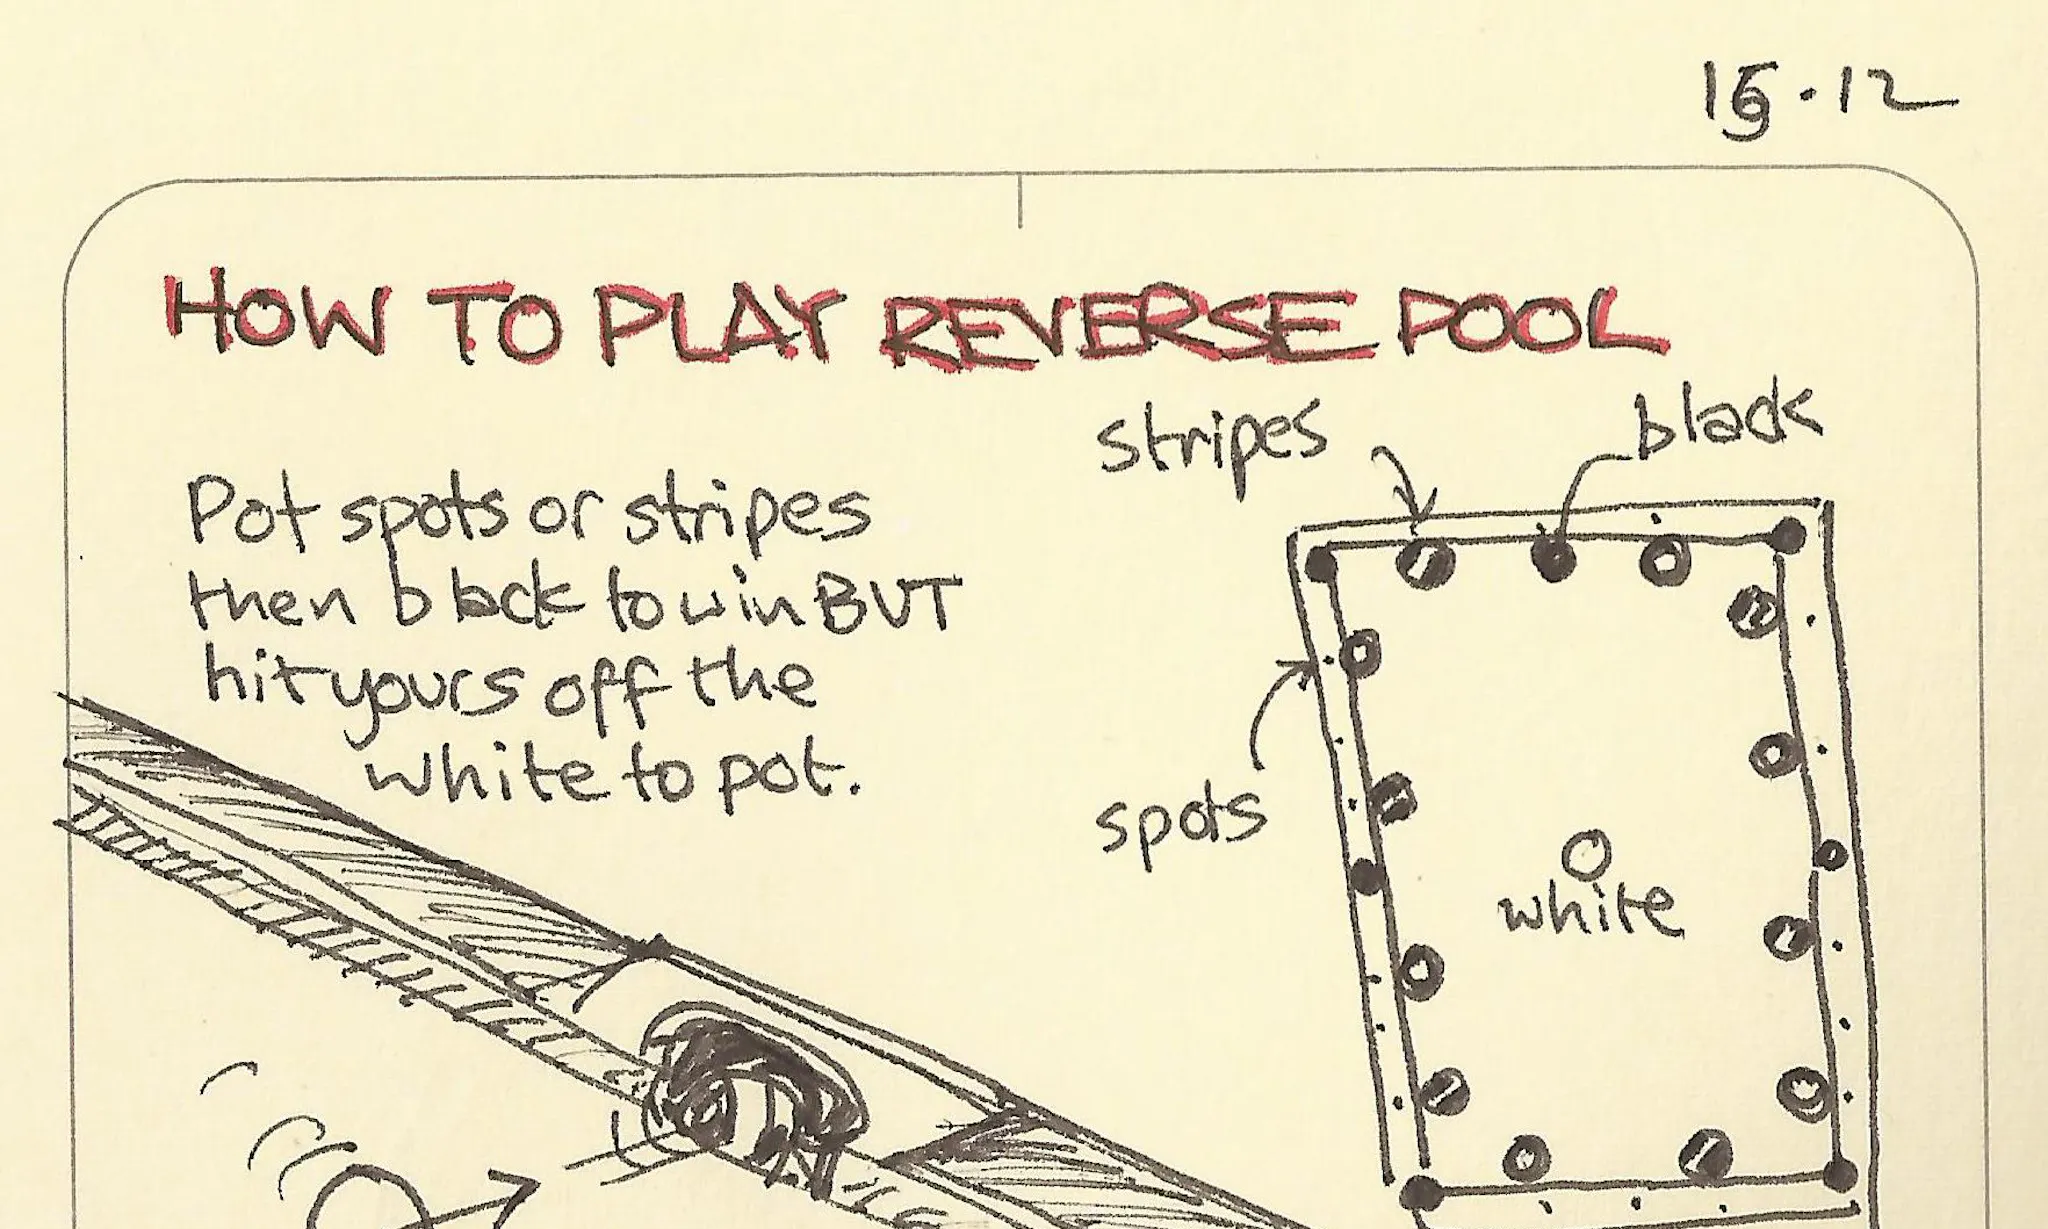 HOW TO PLAY REVERSE POOL
stripes
black
Pot spots or stripes
then black to win BUT
hit yours off the
white to pot.
spots
white